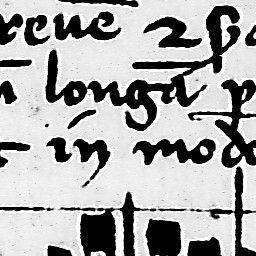 reue 2
longa p
in modo